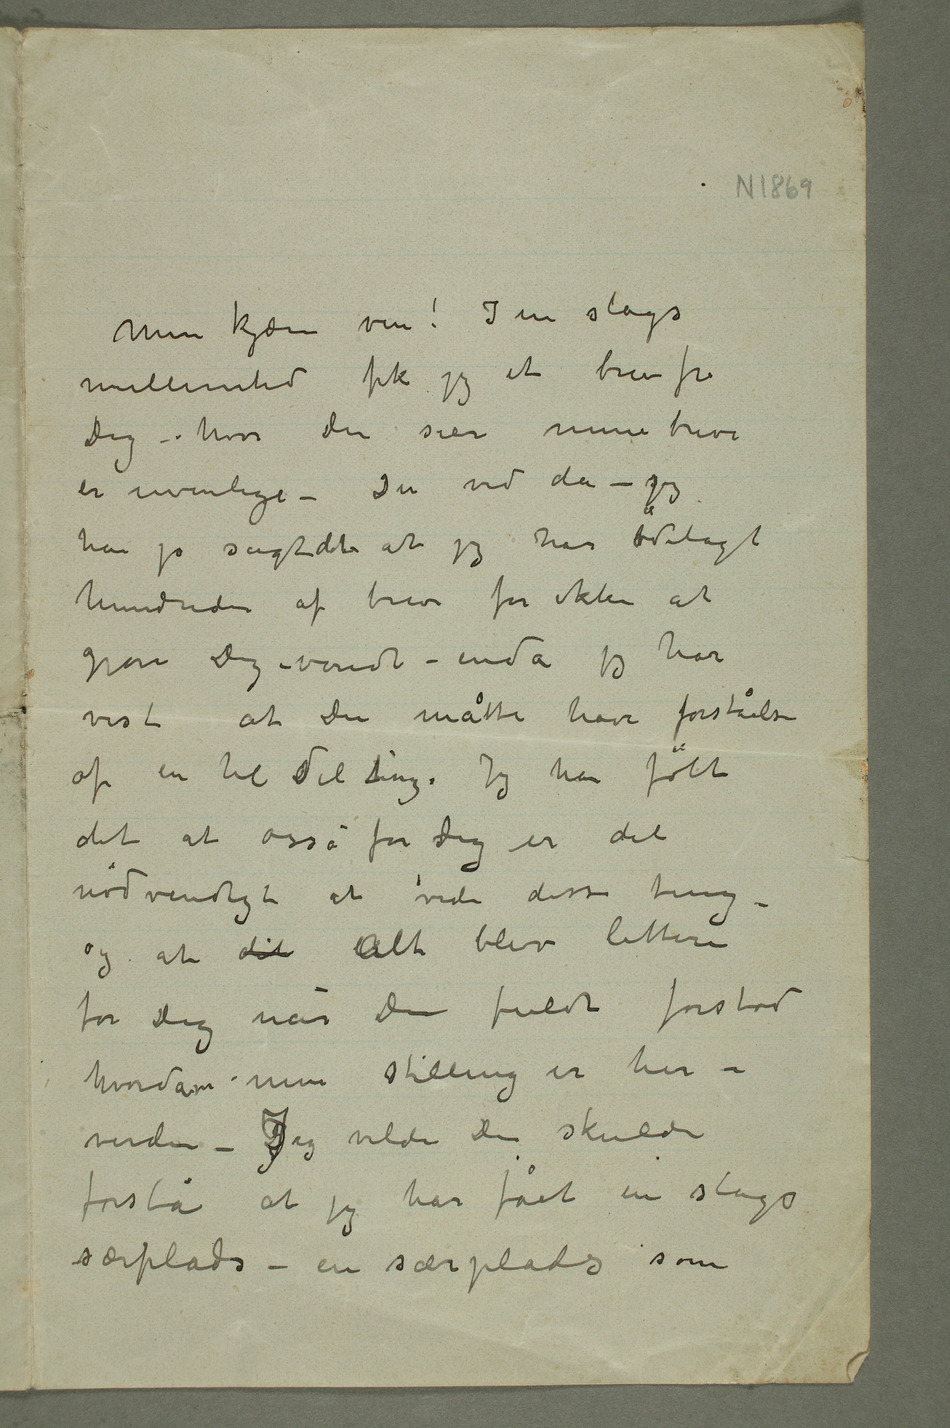 N1869
Min kjære ven! I en slags
mellemtid fik jeg et brev fra
Dig – hvor Du sier mine breve
er uvenlige – Du ved da – jeg
har jo sagt det at jeg har ödelagt
hundreder af breve for ikke at
gjøre Dig vondt – enda jeg har
vist at Du måtte have forståelse
af en hel Del ting. Jeg har fölt
det at osså for Dig er det
nödvendigt at vide disse ting –
og at det Alt blev lettere
for Dig når Du fuldt forstod
hvordan min stilling er her i
verden – Jeg vilde Du skulde
forstå at jeg har fået en slags
særplads – en særplads som